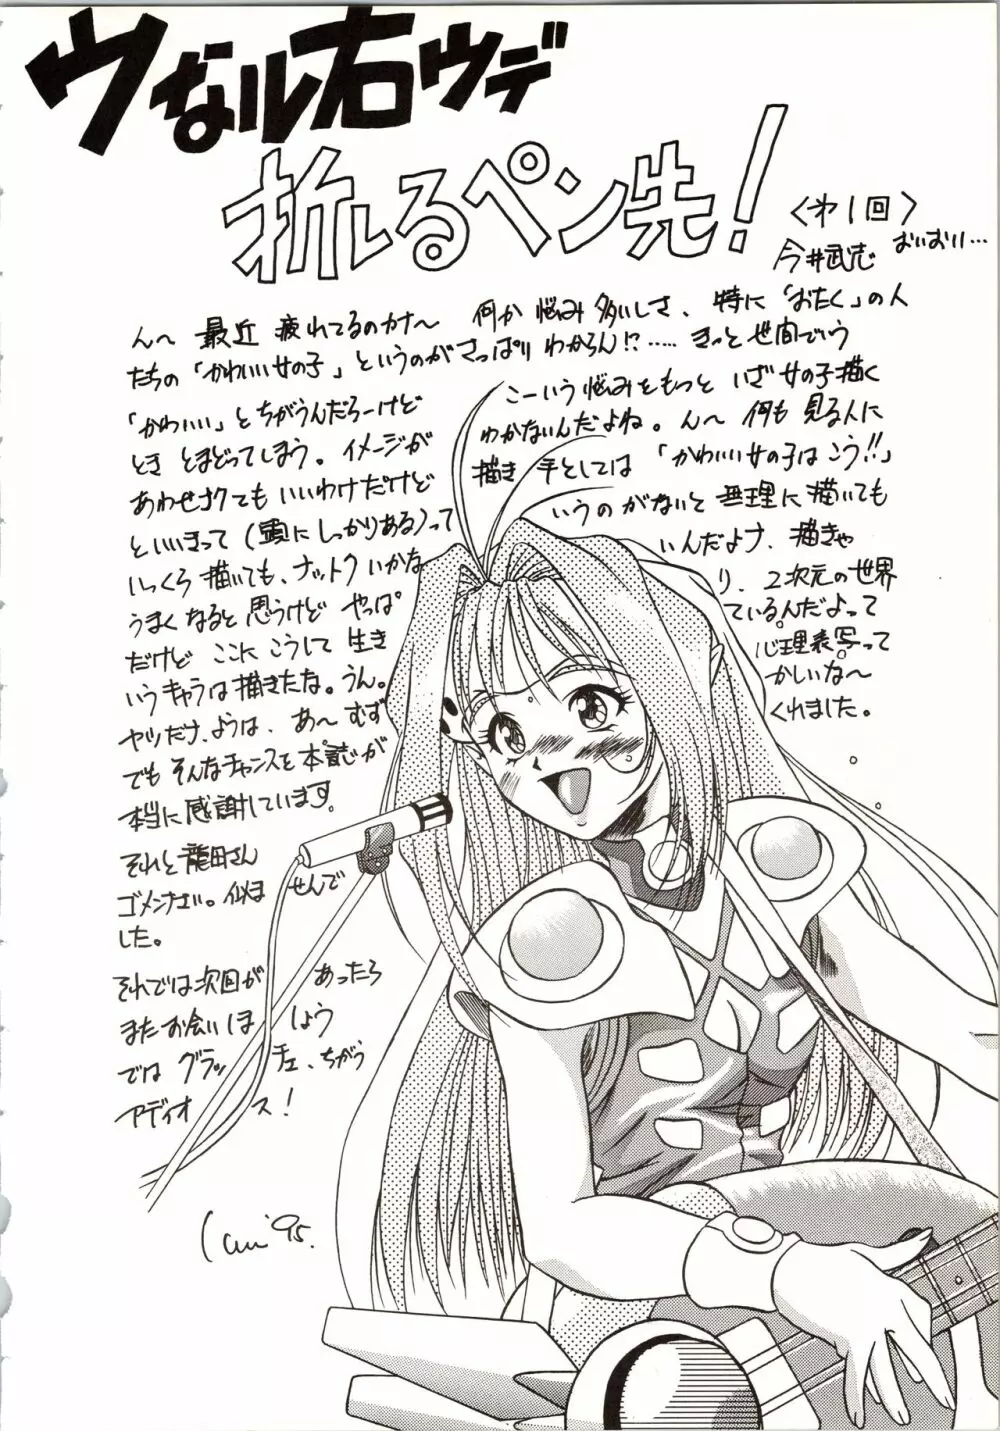 ウなル右ウデ
折れるペン先!
〈オ1回〉
今井武志 おいおい…
ん〜 最近 疲れてるのカナ〜 何か 悩み 多いしさ、特に「おたく」の人
たちの「かわいい女の子」というのがさっぱり わからん!?…… きっと 世間でいう
「かわいい」とちがうんだろーけど こーいう悩みをもっと いざ女の子描く
とき とまどってしまう。イメージが わかないんだよね。ん〜 何も 見る人に
あわせナクても いいわけだけど 描き手としては「かわいい女の子は こう!!」
といいきって(頭にしっかりある)って いうのがないと 無理に描いても
しっくら 描いても、ナットク いかな いんだよナ、描きゃ
うまくなると 思うけど やっぱ り、2次元の世界
だけど ここに こうして 生き ているんだよって
いうキャラは描きたな。うん。 心理表写って
ヤツだナ、ようは、あ〜 むず かしいな〜
でも そんなチャンスを本誌が くれました。
本当に感謝しています。
それと 龍田さん
ゴメンなさい。似ませんで
した。
それでは次回があったら
またお会いしましょう
では グラッチェ、ちがう
アディオス!
Imai '95.